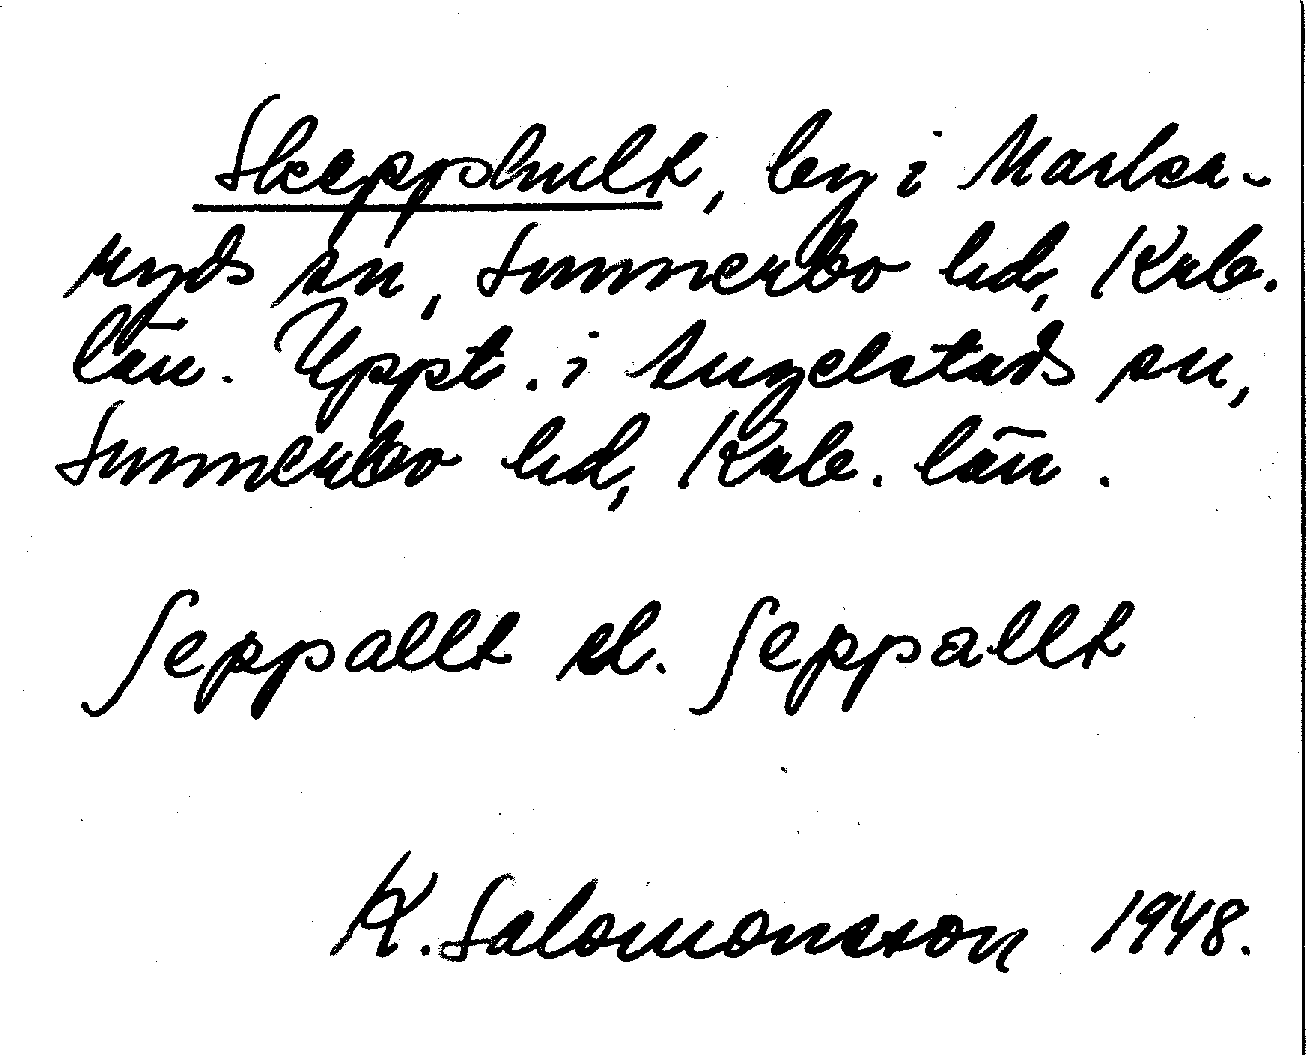 Skeppshult, by i Marka-
ryds sn, Sunnerbo hd, Krb.
län. Uppt. i Angelstads sn,
Sunnerbo hd, Krb. län.
ʃeppallt el. ʃeppallt
K. Salomonsson 1948.